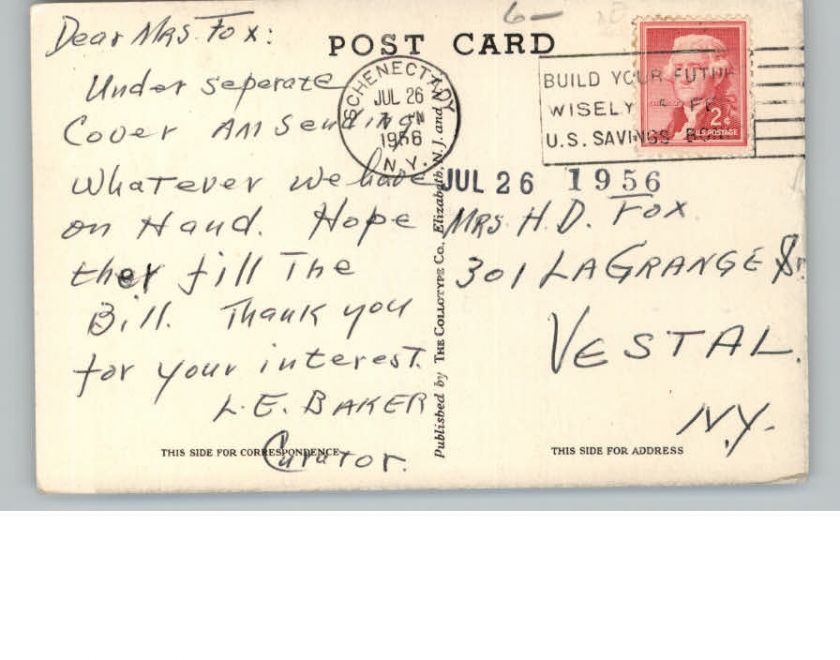 Dear Mrs. Fox:
Under seperate
Cover Am Sending
Whatever we have
on Hand. Hope
they fill The
Bill. Thank you
for your interest.
L.E. BAKER
Curator.
THIS SIDE FOR CORRESPONDENCE
POST CARD
6—
SCHENECTADY
JUL 26
1956
N.Y.
BUILD YOUR FUTURE
WISELY
U.S. SAVINGS
2¢
U.S. POSTAGE
JUL 26 1956
Published by THE COLLOTYPE Co., Elizabeth, N. J. and
MRS. H.D. FOX
301 LAGRANGE
VESTAL.
N.Y.
THIS SIDE FOR ADDRESS